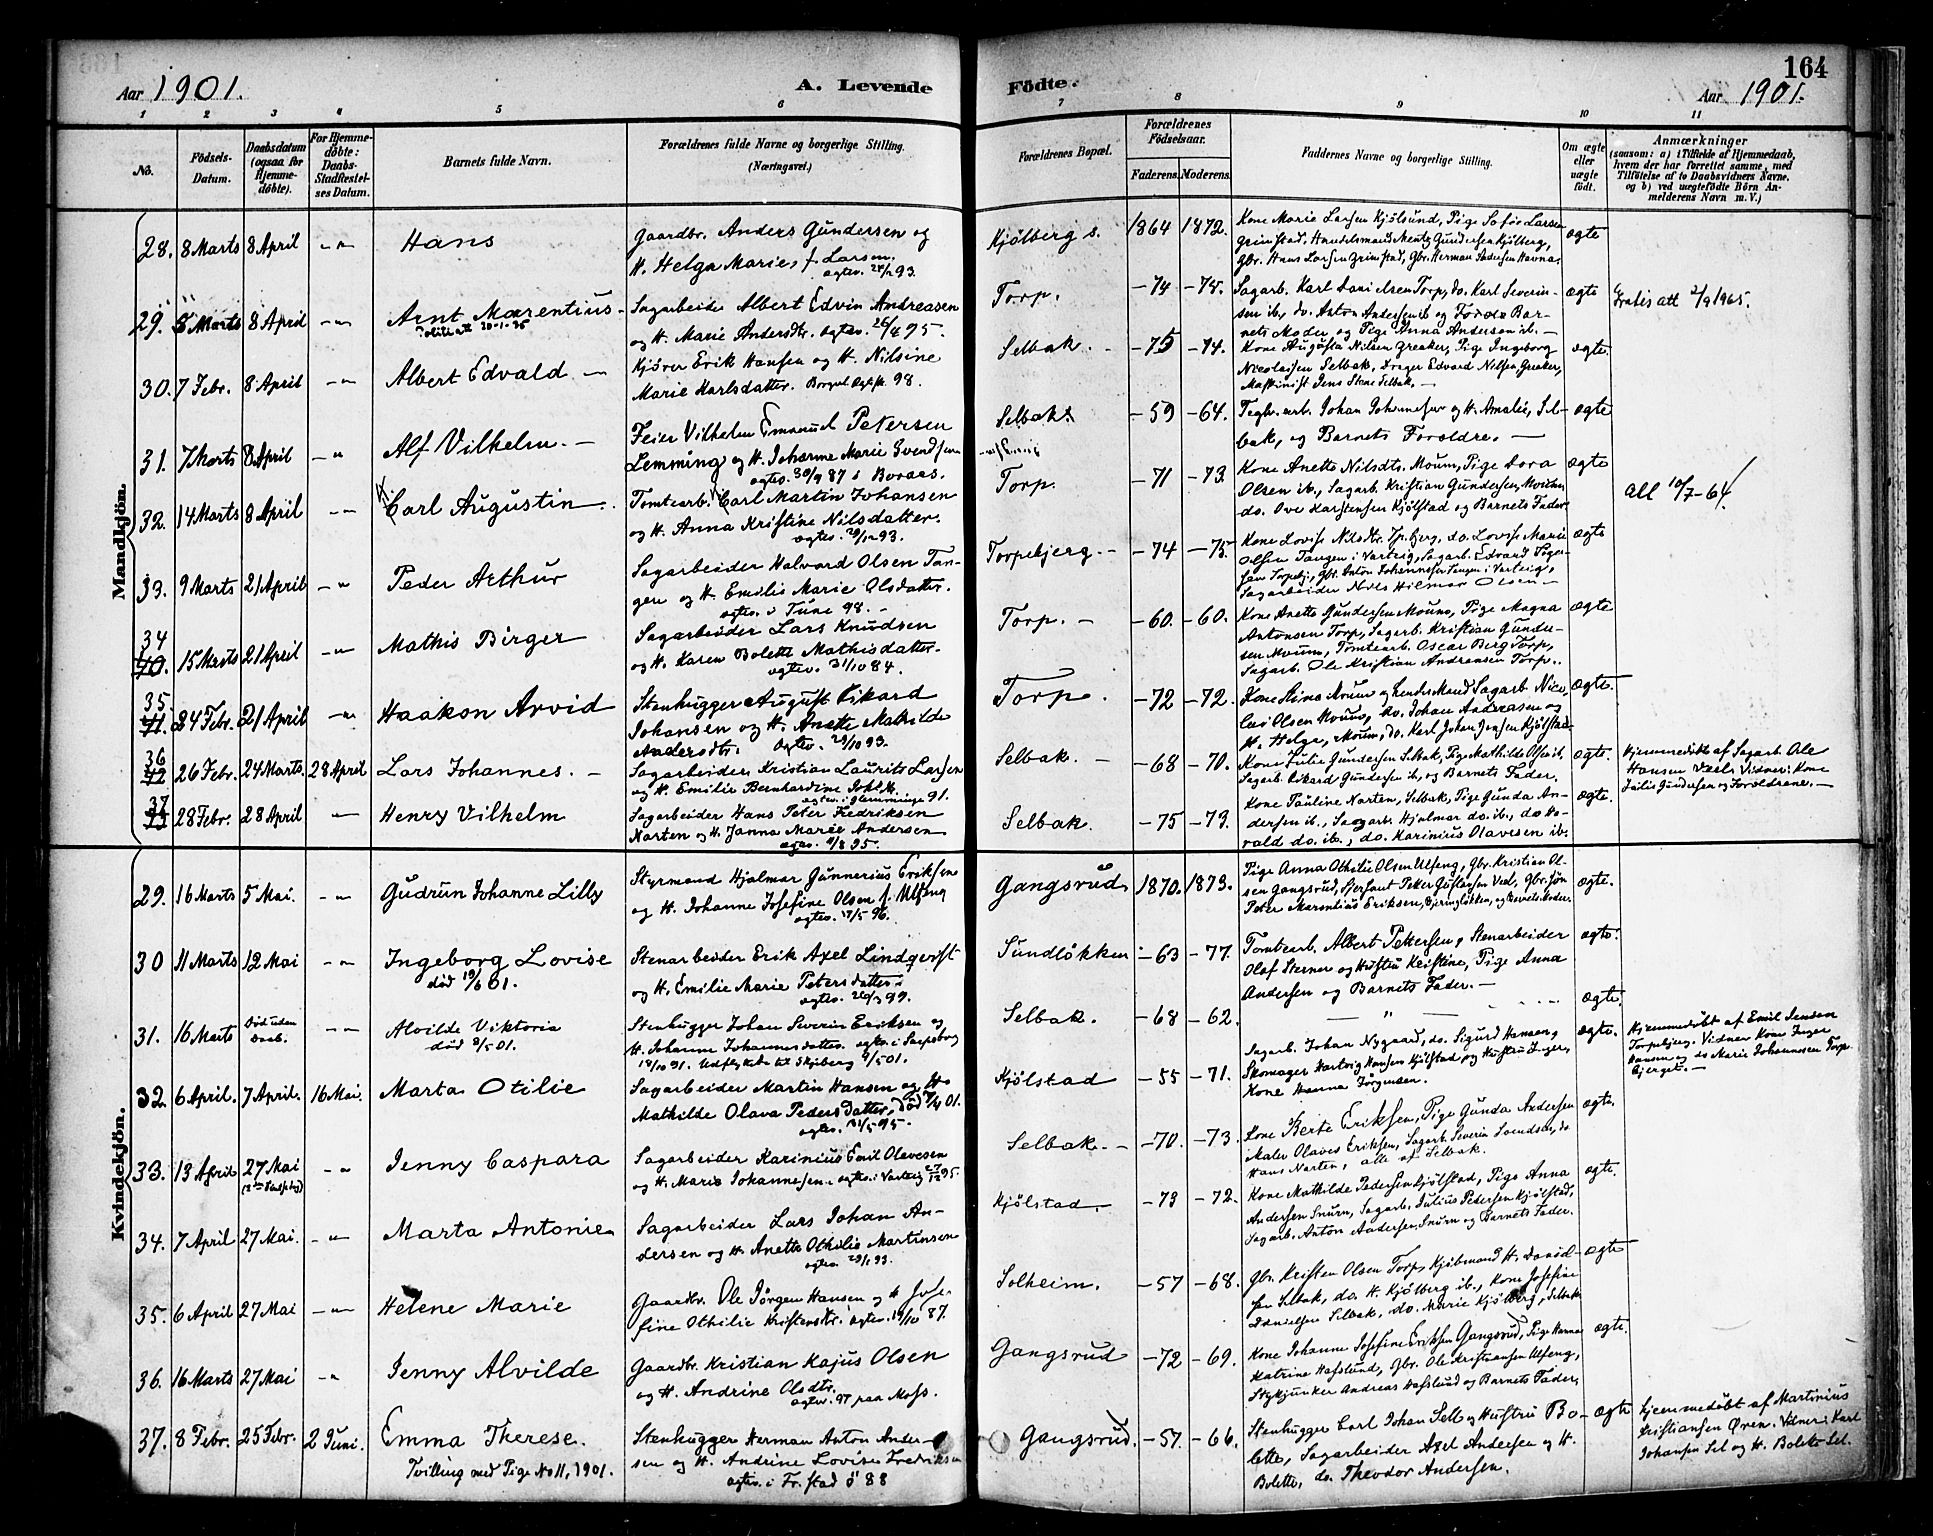 164
Aar 1901.
A. Levende
Födte.
Aar 1901.
1 2 3 4 5 6 7 8 9 10 11
No.
Födsels-Datum.
Daabsdatum (ogsaa for Hjemmedöbte).
For Hjemmedöbte: Daabs-Stadfæstelses Datum.
Barnets fulde Navn.
Forældrenes fulde Navne og borgerlige Stilling.
(Næringsvei.)
Forældrenes Bopæl.
Forældrenes Födselsaar.
Faderens. Moderens.
Faddernes Navne og borgerlige Stilling.
Om ægte eller uægte födt.
Anmærkninger
(saasom: a) i Tilfælde af Hjemmedaab,
hvem der har forrettet samme, med
Tilföielse af to Daabsvidners Navne,
og b) ved uægtefödte Börn An-
melderens Navn m. V.)
Mandkjön.
28. 8 Marts 8 April Hans
Gaardbr. Anders Gundersen og
H. Helga Marie, f. Larsen.
Kjølberg s. 1864 1872.
Kone Marie Larsen Kjølsund, Pige Sofie Larsen
Grimstad, Handelsmand Gundersen Kjølberg,
Gbr. Hans Larsen Grimstad, Gbr. Herman Havna.
ægte
29. 5 Marts 8 April Arnt Marentius
Sagarbeider Albert Edvin Andreassen
og H. Marie Andersdtr. ogtev. 26/4 95.
Torp. -74 -75.
Sagarb. Karl Danielsen Torp, do. Karl Severin-
sen ib., do. Anton Andersen ib og
nets Moder og Pige Anna Andersen ib.
ægte
att 2/9 1965.
30. 7 Febr. 8 April Albert Edvald
Kjører Erik Hansen og H. Nilsine
Marie Karlsdatter. 98.
Selbak. -75 -74.
Kone Augusta Nilsen Greaker, Pige Ingeborg
Nicolaisen Selbak, Drager Edvard Nilsen Greaker,
Maskinist Jens Stene Selbak.
ægte.
31. 7 Marts 8 April Alf Vilhelm.
Feier Vilhelm Emanuel Petersen
Lemming og H. Johanne Marie Svendsen
ogtev. 30/9 87 i Boraas.
Selbak. -59 -64.
Teglv.arb. Johan Johannesen og H. Amalie, Sel-
bak, og Barnets Forældre.
ægte
32. 14 Marts 8 April Carl Augustin
Tomtearb. Carl Martin Johansen
og H. Anna Kristine Nilsdatter.
Torp. -71 -73
Kone Anette Nilsdtr. Moum, Pige Dora
Olsen ib., Sagarb. Kristian Gundersen, Moum,
do. Ove Karstensen Kjølstad og Barnets Fader.
ægte
att 10/7-64.
33. 9 Marts 21 April Peder Arthur
Sagarbeider Halvard Olsen Tan-
gen og H. Emilie Marie Olsdatter.
ogtev. i Juni 98.
Torpebjerg. -74 -75.
Kone Lovise Nilsdtr. Tp.bjerg, do. Lovise Marie
Olsen Tangen i Varteig, Sagarb. Edvard
Torpebj., Gbr. Anton Johannesen Tangen i Varteig,
Sagarbeider Nils Hilmar Olsen
ægte
34 40. 15 Marts 21 April Mathis Birger
Sagarbeider Lars Knudsen
og H. Karen Bolette Mathisdatter.
ogtev. 31/10 84.
Torp. -60 -60.
Kone Anette Gundersen Moum, Pige Magna
Antonsen Torp, Sagarb. Kristian Gunder-
sen Moum, Tomtearb. Oscar Berg Torp,
Sagarb. Ole Kristian Andreasen Torp.
ægte
35. 41. 24 Febr. 21 April Haakon Arvid
Stenhugger August Rikard
Johansen og H. Anette Mathilde
Andersdtr. Ogtev. 29/10 93.
Torp. -72 -72.
Kone Stine Moum og hendes Mand Sagarb. Nico-
lai Olsen Moum, do. Johan Andreasen og
H. Helga, Moum, do. Karl Johan Jensen Kjølstad
ægte.
36 42 26 Febr. 24 Marts. 28 April Lars Johannes.
Sagarbeider Kristian Laurits Larsen
og H. Emilie Bernhardine
ogtev. i Glemminge 91.
Selbak. -68 -70.
Kone Julie Gundersen Selbak, Pige Mathilde Olsen ib,
Sagarb. Rikard Gundersen ib., og Barnets Fader.
ægte.
Hjemmedöbt af Sagarb. Ole
Hansen Vidner: Kone
Julie Gundersen og Forældrene.
37 43 28 Febr. 28 April Henry Vilhelm
Sagarbeider Hans Peter Fredriksen
Narten og H. Janna Marie Andersen
Selbak. -75 -73.
Kone Pauline Narten, Selbak, Pige Gunda An-
dersen ib., Sagarb. Hjalmar do. ib., do Ha-
rald do. ib., do. Karinius Olavesen ib.
ægte.
Kvindekjön.
29. 16 Marts 5 Mai. Gudrun Johanne Lilly
Styrmand Hjalmar Gunnerius Eriksen
og H. Johanne Josefine Olsen f. Ulfeng
ogtev. 17/5 96.
Gangsrud 1870. 1873.
Pige Anna Othilie Olsen Ulfeng, Gbr. Kristian Ol-
sen Gangsrud, Sersjant Peter Gustavsen Ved, Gbr. Søn
Peter Marentius Eriksen, og Barnets Moder.
ægte.
30 11 Marts 12 Mai Ingeborg Lovise
død 19/6 01.
Stenarbeider Erik Axel Lindqvist
og H. Emilie Marie Petersdatter.
Sundløkken -63 -77.
Tomtearb. Albert Pettersen, Stenarbeider
Olaf Sterner og Hustru Kristine, Pige Anna
Andersen og Barnets Fader.
ægte.
31. 16 Marts Död uden Daab. Alvilde Viktoria
død 8/5 01.
Stenhugger Johan Severin Eriksen og
H. Johanne Johannesdatter ogtev. i Sarpsborg
18/10 91. Udflyttede til Skjeberg 01.
Selbak. -68 -62.
ægte.
32. 6 April. 7 April. 16 Mai. Marta Otilie
Sagarbeider Martin Hansen og H.
Mathilde Olava Pedersdatter, død 01.
ogtev. 31/5 95.
Kjølstad -55 -71.
Sagarb. Johan Nygaard, do. Sigurd Hansen,
Skomager Hartvig Hansen Kjølstad og Hustru Inger,
Kone Hanna Jörgensen.
ægte.
Hjemmedöbt af Emil Jensen
Torpebjerg. Vidner Kone Inger
Hansen og do Marie Johannessen Torp-
bjerget.
33. 13 April 27 Mai Jenny Caspara
Sagarbeider Karinius Emil Olavesen
og H. Marie Johannesen. ogtev. i Varteig 95.
Selbak. -70. -73.
Kone Berte Eriksen, Pige Gunda Andersen
Maler Olaves Eriksen, Sagarb. Severin Svendsen, do
Hans Narten, alle af Selbak.
ægte.
34. 7 April 27 Mai. Marta Antonie
Sagarbeider Lars Johan An-
dersen og H. Anette Othilie Martinsen
Kjølstad. -73 -72.
Kone Mathilde Pedersen Kjølstad, Pige Anna
Andersen Snurn, Sagarb. Julius Pedersen Kjølstad,
Sagarb. Anton Andersen, Snurn og Barnets Fader.
ægte.
35. 6 April 27 Mai Helene Marie
Gaardbr. Ole Jörgen Hansen og H Jose-
fine Othilie Kristensdtr. Ogtev. 19/10 87.
Solheim. -57 -68.
Gbr. Kristen Olsen Torp, Kjøbmand H. David-
sen Selbak, do. H. Kjølberg ib., Kone Josefine
Danielsen Selbak, do. Marie Kjølberg, Selbak
ægte
36. 16 Marts 27 Mai Jenny Alvilde
Gaardbr. Kristian Kajus Olsen
og H. Andrine Olsdtr.
ogtev. 97 paa Moss.
Gangsrud -72 -69.
Kone Johanne Josefine Eriksen Gangsrud, Pige Hanna
Katrine Hafslund, Gbr. Ole Kristiansen Ulfeng,
Stykjunker Andreas Hafslund og Barnets Fader.
ægte.
37. 8 Febr. 25 Febr. 2 Juni. Emma Therese.
Tvilling med Pige No 11, 1901.
Stenhugger Herman Anton Ander-
sen og H. Andrine Lovise Fredriksen
ogtev. i Fr.stad 88
Gangsrud. -57. -66.
Stenhugger Carl Johan Sell og Hustru Bo-
lette, Sagarbeider Axel Andersen og H.
Bolette, do. Theodor Andersen.
ægte
Hjemmedöbt af Martinius
Kristiansen Øren. Vidner: Karl
Johansen Sel og H. Bolette Sel.